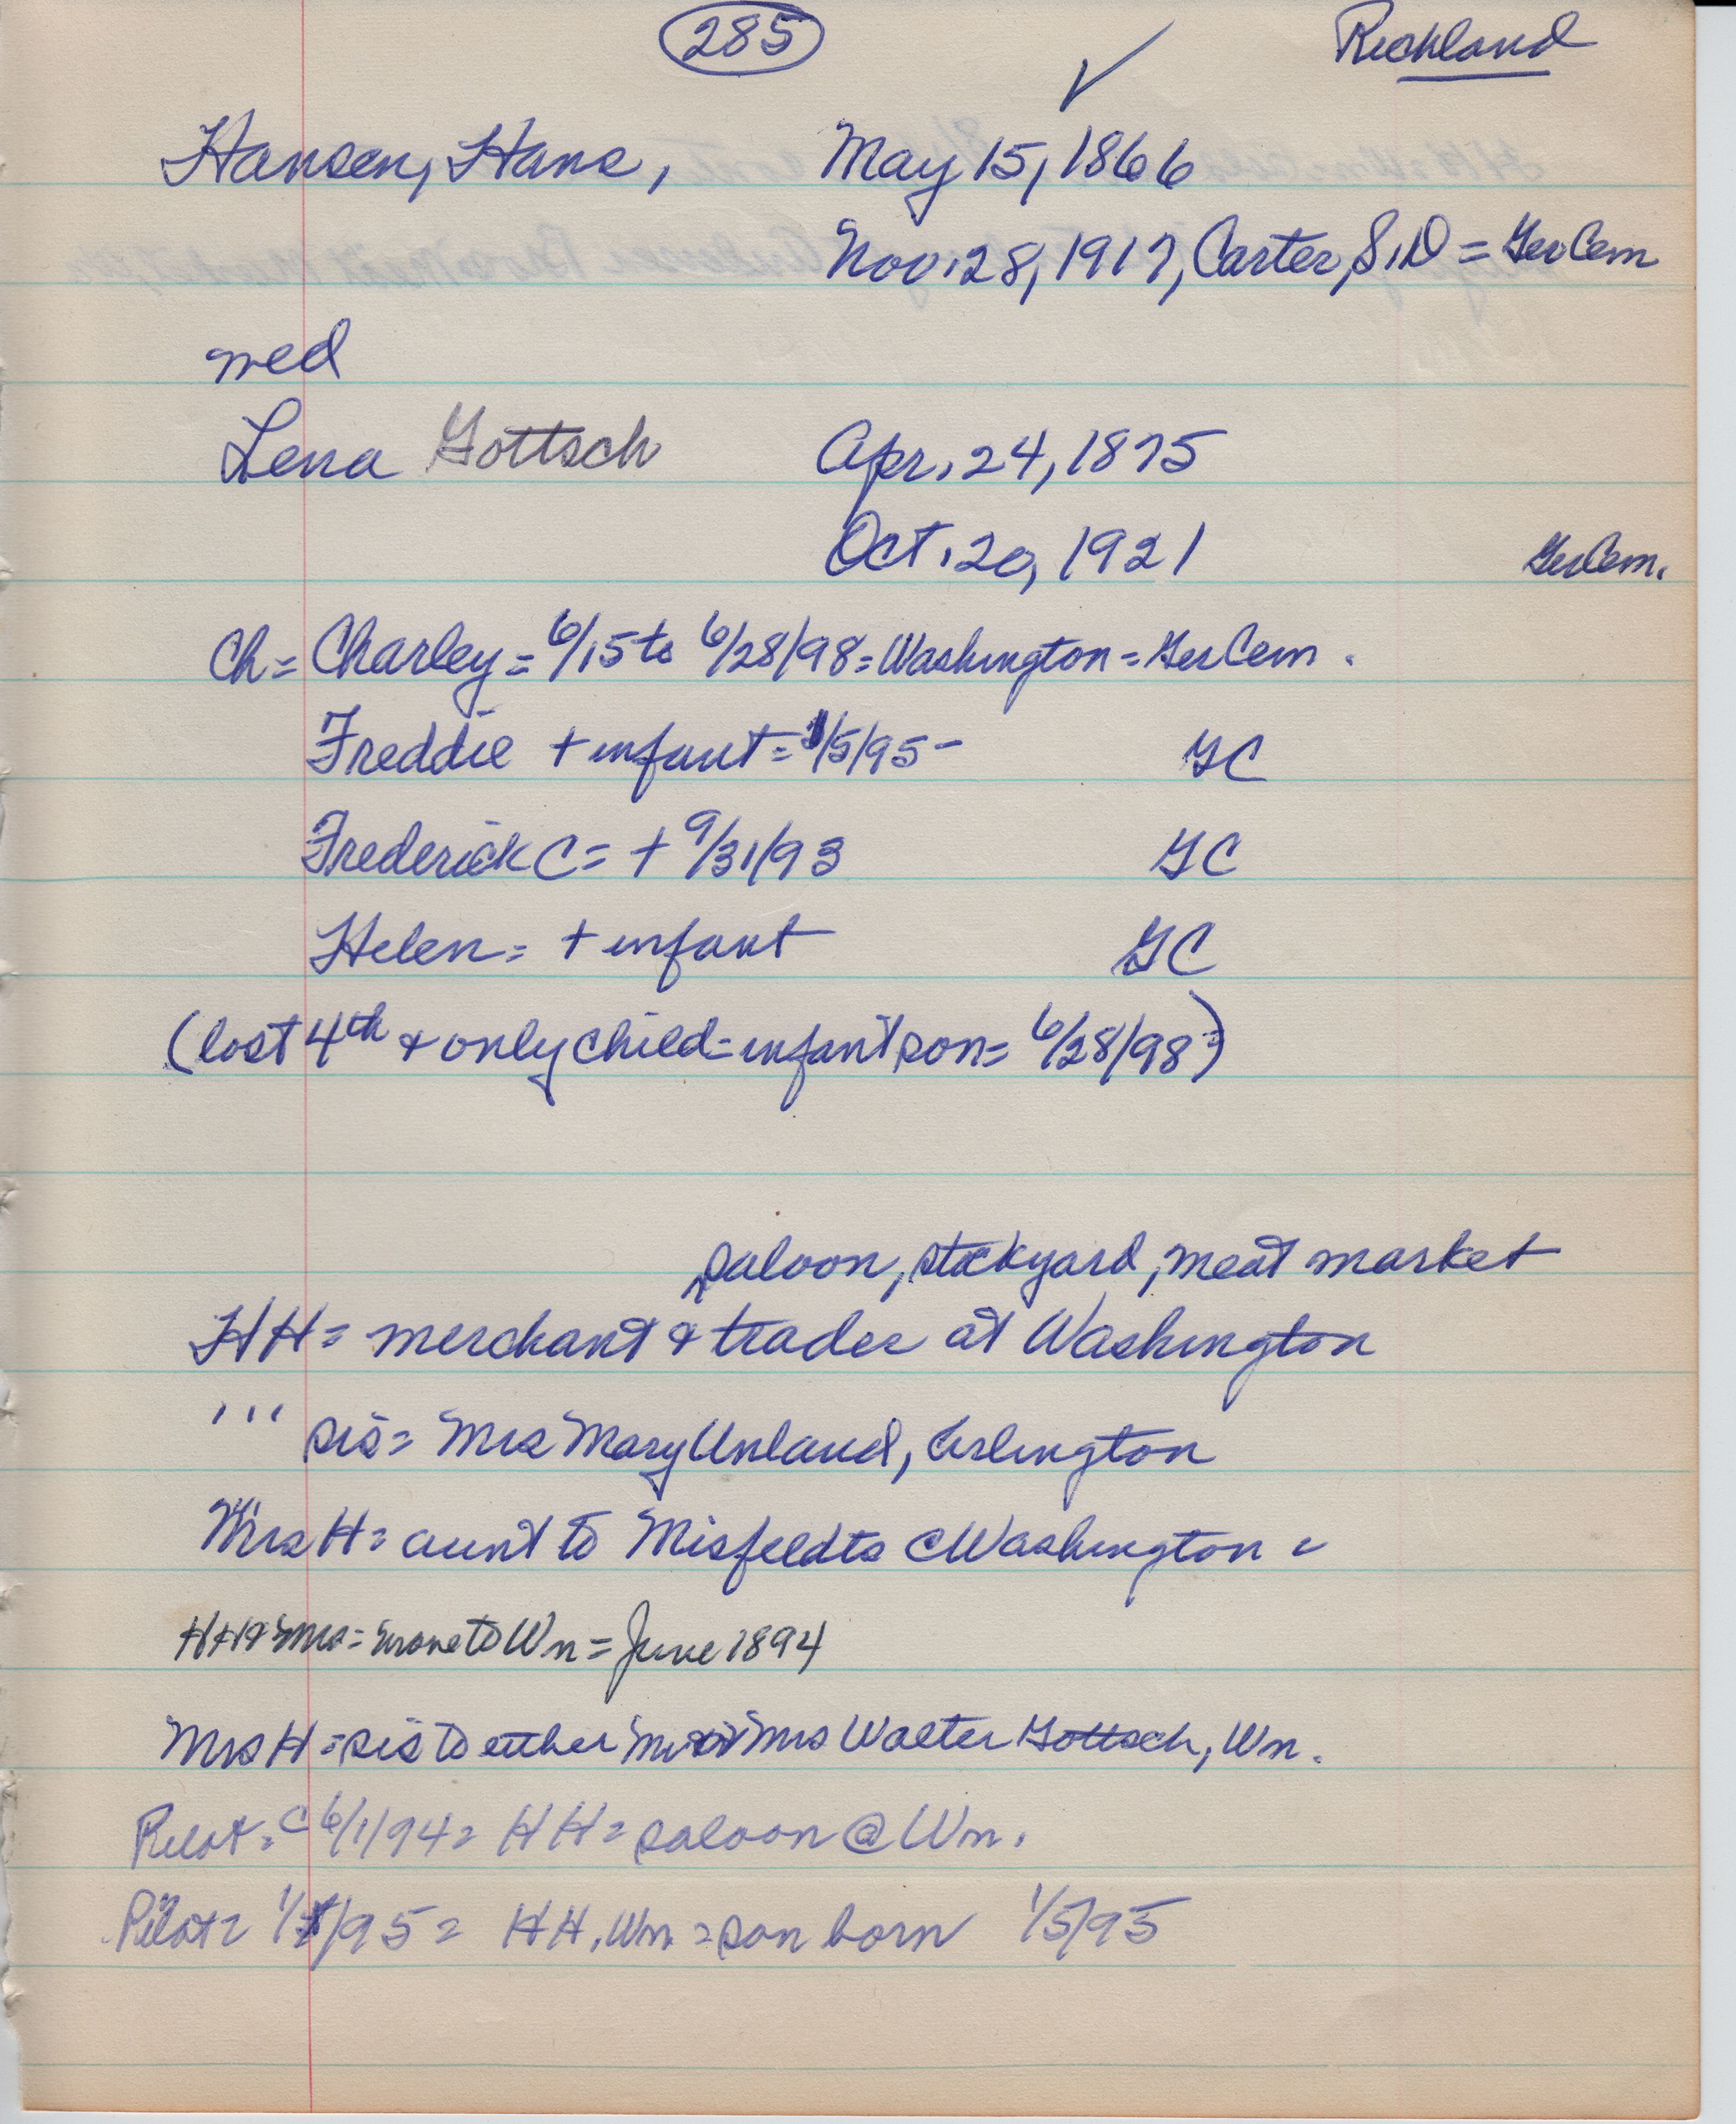 285 ✓ Richland
Hansen, Hans, May 15, 1866
Nov. 28, 1917, Carter, S.D = GerCem
wed
Lena Gottsch Apr. 24, 1875
Oct. 20, 1921 GerCem.
Ch = Charley = 6/15 to 6/28/98 = Washington = GerCem.
Freddie + infant = 1/5/95 - GC
Frederick C = + 9/31/93 GC
Helen = + infant GC
(lost 4th & only child = infant son = 6/28/98)
saloon, stockyard, meat market
HH = merchant & trader at Washington
''' sis = Mrs Mary Unland, Arlington
Mrs H = aunt to Misfeldts c Washington
HH & Mrs = move to Wn = June 1894
Mrs H = sis to either Mr or Mrs Walter Gottsch, Wn.
Pilot = c 6/1/94 = HH = saloon @ Wn.
Pilot = HH, Wn = son born 1/5/95